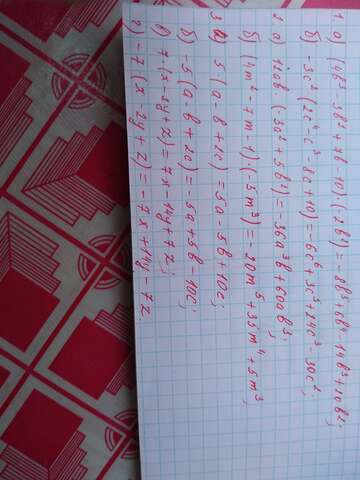 1. а) (4b³ - 3b² + 7b - 10)·(-2b²) = -8b⁵ + 6b⁴ - 14b³ + 20b²;
б) -3c² (2c⁴ c³ - 8c + 10) = -6c⁶ + 3c⁵ + 24c³ - 30c²;
2 а) 12ab (-3a² + 5b²) = -36a³b + 60ab³;
б (4m² - 7m - 1)·(-5m³) = -20m⁵ + 35m⁴ + 5m³;
3 а) 5 (a - b + 2c) = 5a - 5b + 10c;
б) -5 (a - b + 2c) = -5a + 5b - 10c;
в) 7 (x - 2y + z) = 7x - 14y + 7z;
г) -7 (x - 2y + z) = -7x + 14y - 7z.